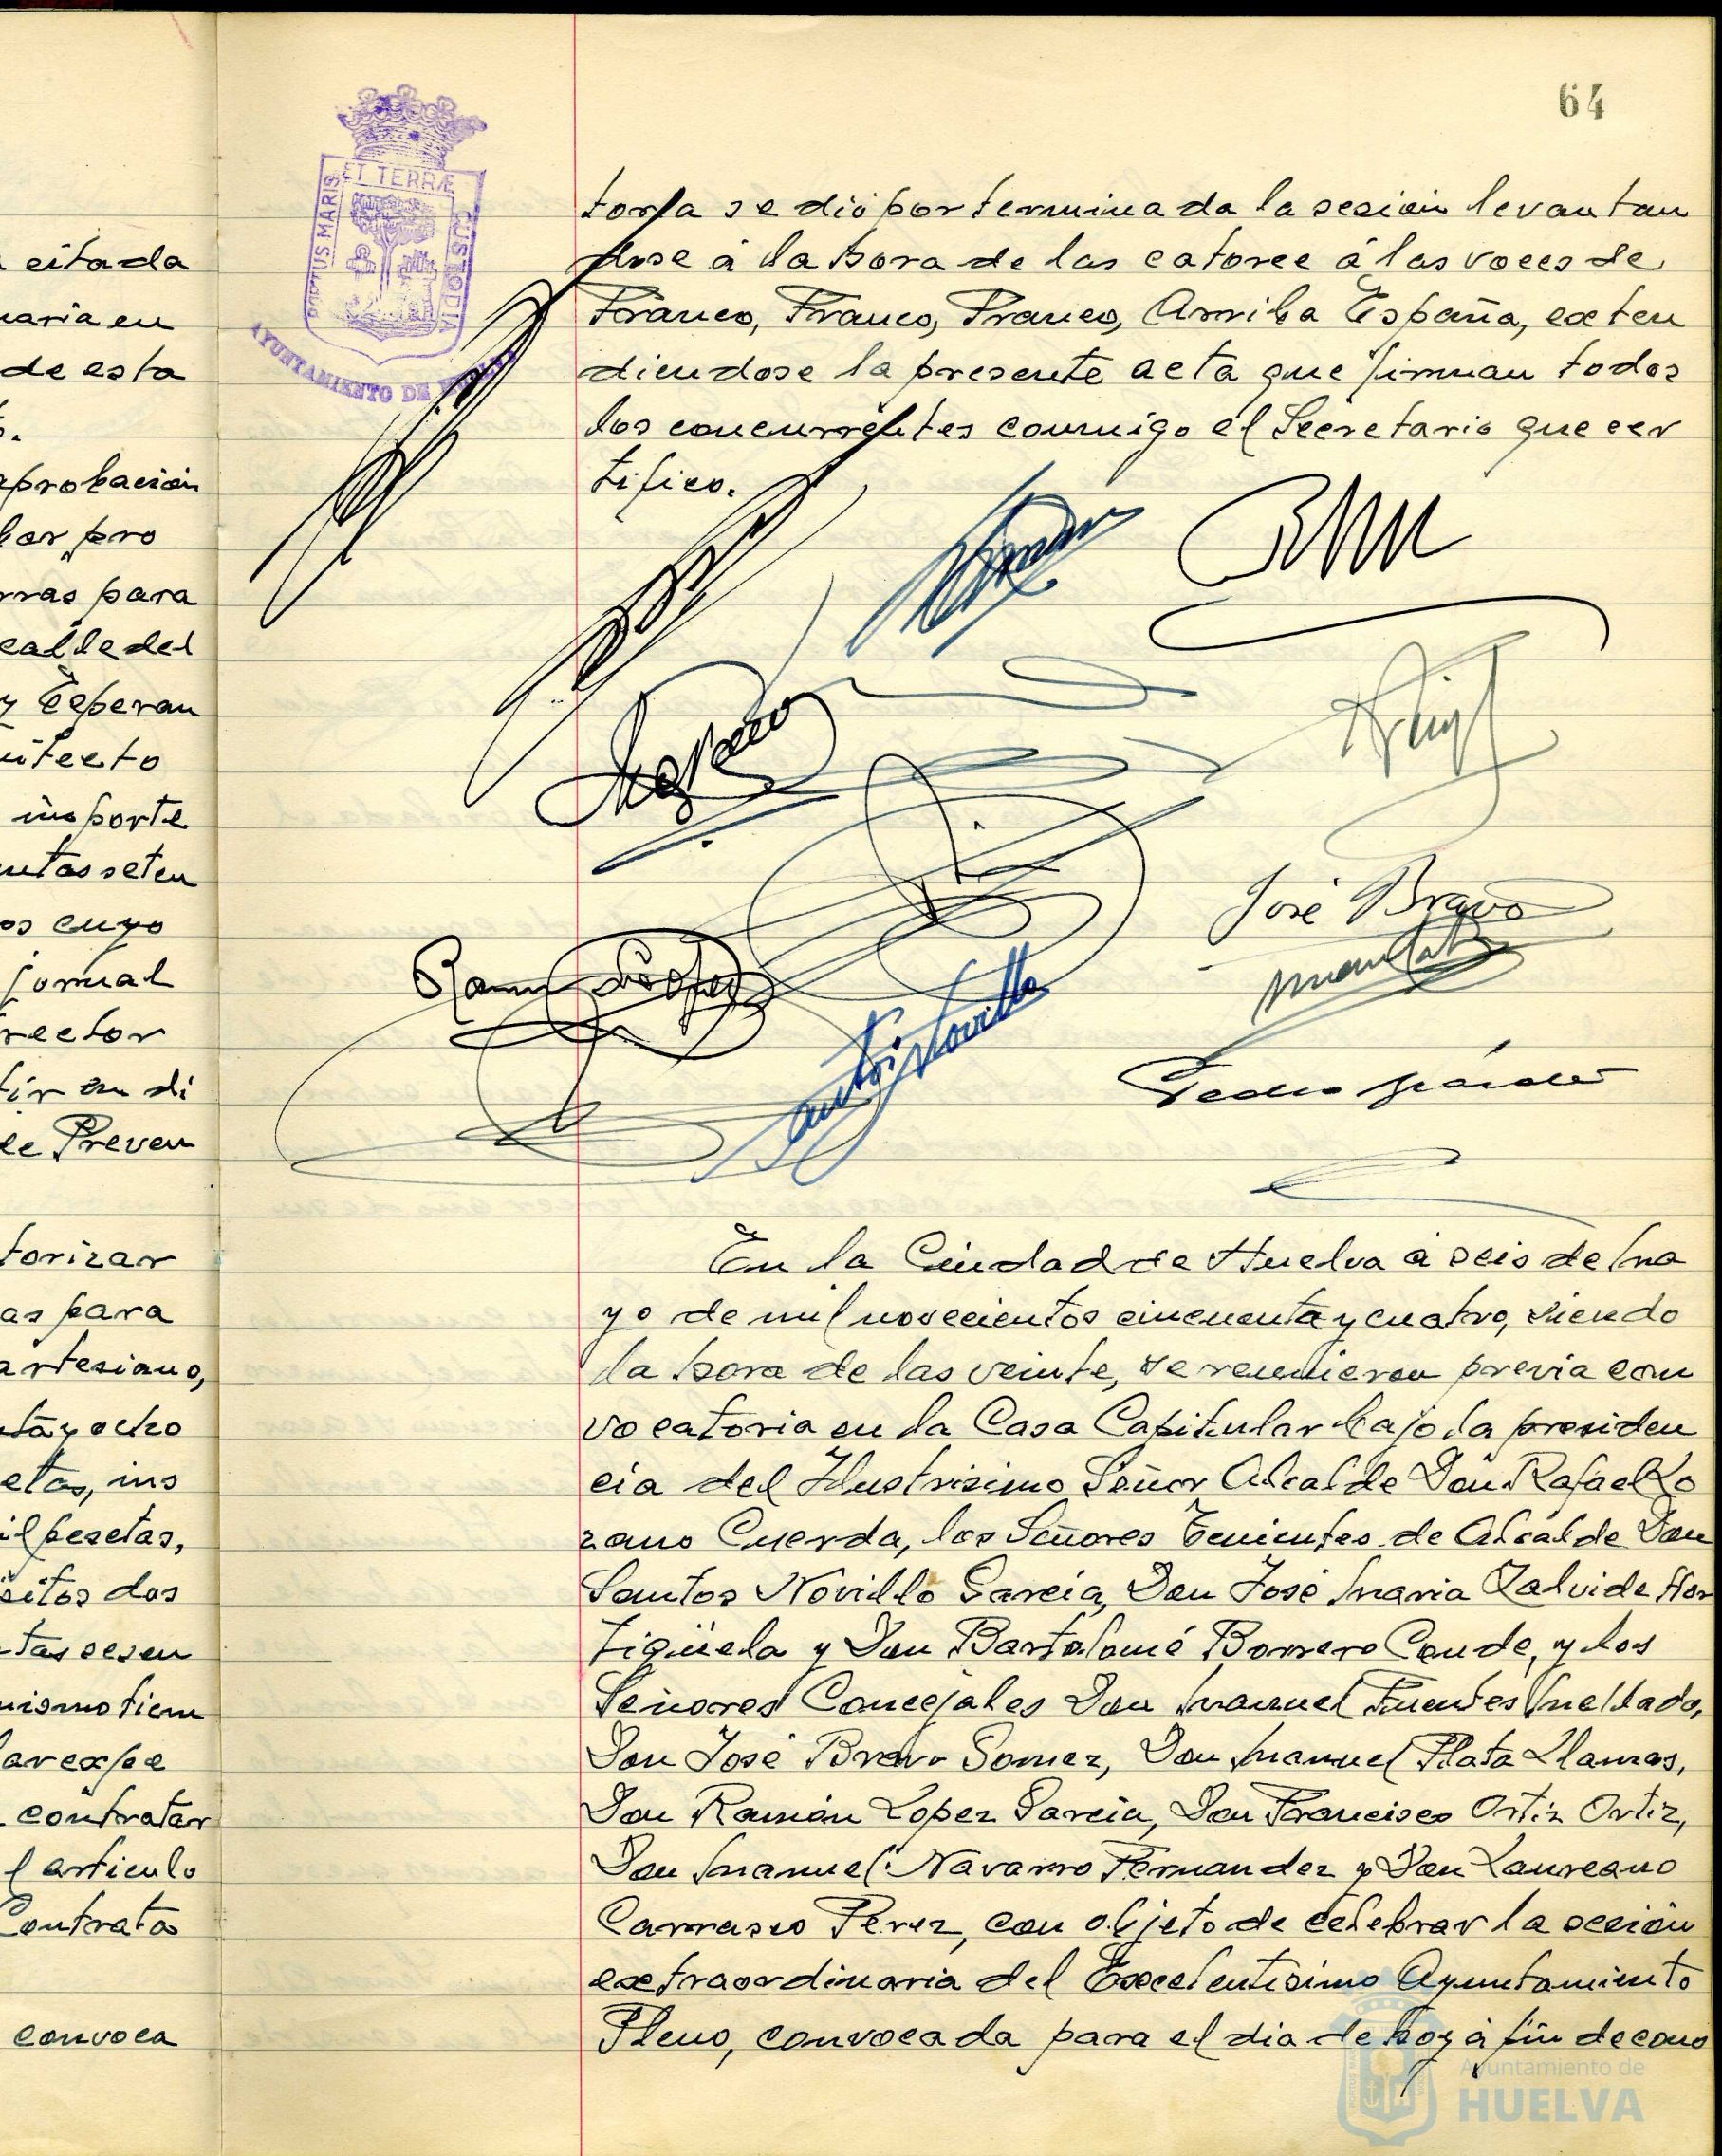 64
PORTUS MARIS
ET TERRÆ
CUSTODIA
AYUNTAMIENTO DE
citada
de esta
aprobacion
lar pro
para
calle del
y Esperan
importe
cuyo
jornal
rector
di
de Preven
torizar
as para
artesiano,
ocho
ins
pesetas,
dos
mismo tiem
contratar
articulo
Contratos
convoca
toria se dió por terminada la sesión levantan
dose á la hora de las catorce á las voces de
Franco, Franco, Franco, Arriba España, exten
diendose la presente acta que firman todos
los concurrentes conmigo el Secretario que cer
tifico.
José Bravo
En la Ciudad de Huelva á seis de ma
yo de mil novecientos cincuenta y cuatro, siendo
la hora de las veinte, se reunieron previa con
vocatoria en la Casa Capitular bajo la presiden
cia del Ilustrisimo Señor Alcalde Don Rafael Lo
zano Cuerda, los Señores Tenientes de Alcalde Don
Santos Novillo Garcia, Don José Maria Zalvide Hor
tigüela y Don Bartolomé Borrero Conde, y los
Señores Concejales Don Manuel Fuentes Mellado,
Don José Bravo Gomez, Don Manuel Plata Llamas,
Don Ramón Lopez Garcia, Don Francisco Ortiz Ortiz,
Don Manuel Navarro Fernandez y Don Laureano
Carrasco Perez, con objeto de celebrar la sesión
extraordinaria del Excelentisimo Ayuntamiento
Pleno, convocada para el dia de hoy á fin de cono
Ayuntamiento de
HUELVA